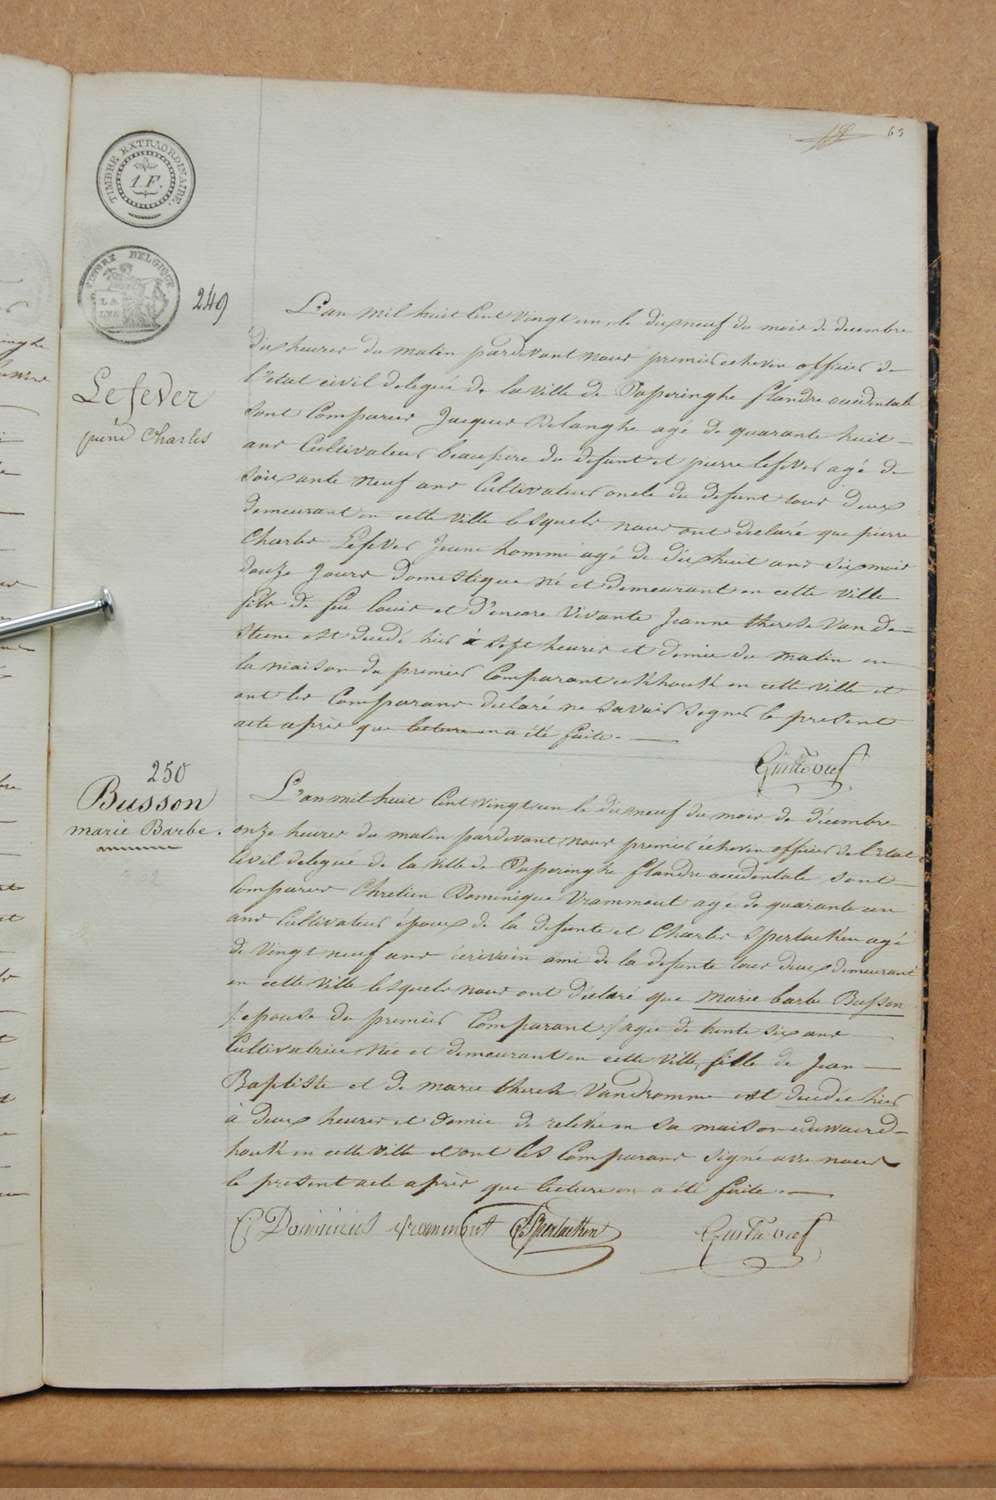 63
TIMBRE EXTRAORDINAIRE.
1. F.
TIMBRE BELGIQUE
LA
LYS
249
Lefever
pierre Charles
L'an mil huit Cent Vingt un le dix neuf du mois de decembre
dix heures du matin pardevant nous premier echevin officier de
l'etat civil delegué de la ville de Poperinghe flandre occidentale
sont Comparus Jacques Delanghe agé de quarante huit
ans Cultivateur beaupere du defunt et pierre lefever agé de
soixante neuf ans Cultivateur oncle du defunt tous deux
demeurant en cette ville lesquels nous ont declaré que pierre
Charles Lefever Jeune homme agé de dix huit ans six mois
douze jours Domestique né et demeurant en cette ville
fils de feu louis et d'encore Vivante Jeanne therese Van de=
steene est decedé hier à sept heures et demie du matin en
la maison du premier Comparant en cette ville et
ont les Comparans declaré ne savoir signer le present
acte après que lecture en a été faite.
250
Busson
marie Barbe.
L'an mil huit Cent vingt un le dix neuf du mois de décembre
onze heures du matin pardevant nous premier échevin officier de l'etat
Civil delegué de la ville de Poperinghe flandre occidentale sont
Comparus Chretien Dominique Vrammout agé de quarante un
ans Cultivateur époux de la defunte et Charles Sperlaeken agé
de Vingt neuf ans écrivain ami de la defunte tous deux demeurant
en cette Ville lesquels nous ont déclaré que marie barbe Busson
épouse du premier Comparant agée de trente six ans
Cultivatrice Née et demeurant en cette Ville, fille de Jean
Baptiste et de marie therese Vandromme est decedée hier
à deux heures et demie de relevé en sa maison
houk en cette ville et ont les Comparans signé avec nous
le present acte après que lecture en a été faite.
C Dominicus vrammout Sperlaeken